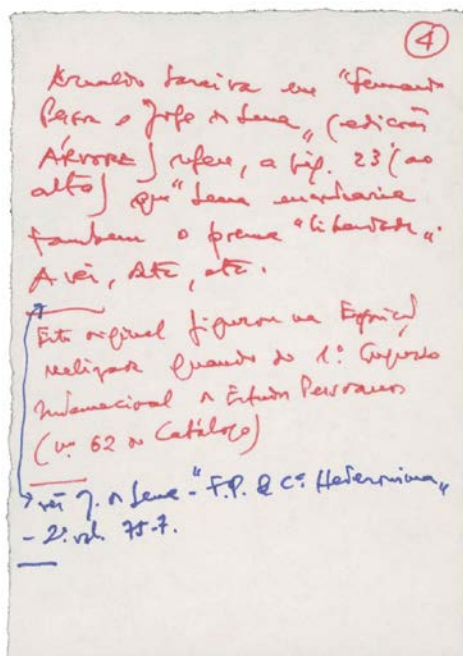 4
Arnaldo Saraiva em "Fernando
Pessoa e Jorge de Sena" (edições
ÁRVORE) refere, a pág. 23 (ao
alto) que "Sena
também o poema "Liberdade".
A ver, etc, etc.
Este original figurou na Exposição
realizada quando do 1º Congresso
Internacional de Estudos Pessoanos
(nº 62 do Catálogo)
ver J. de Sena - "F.P. & Cª Heteronima"
- 2º vol. 75-7.